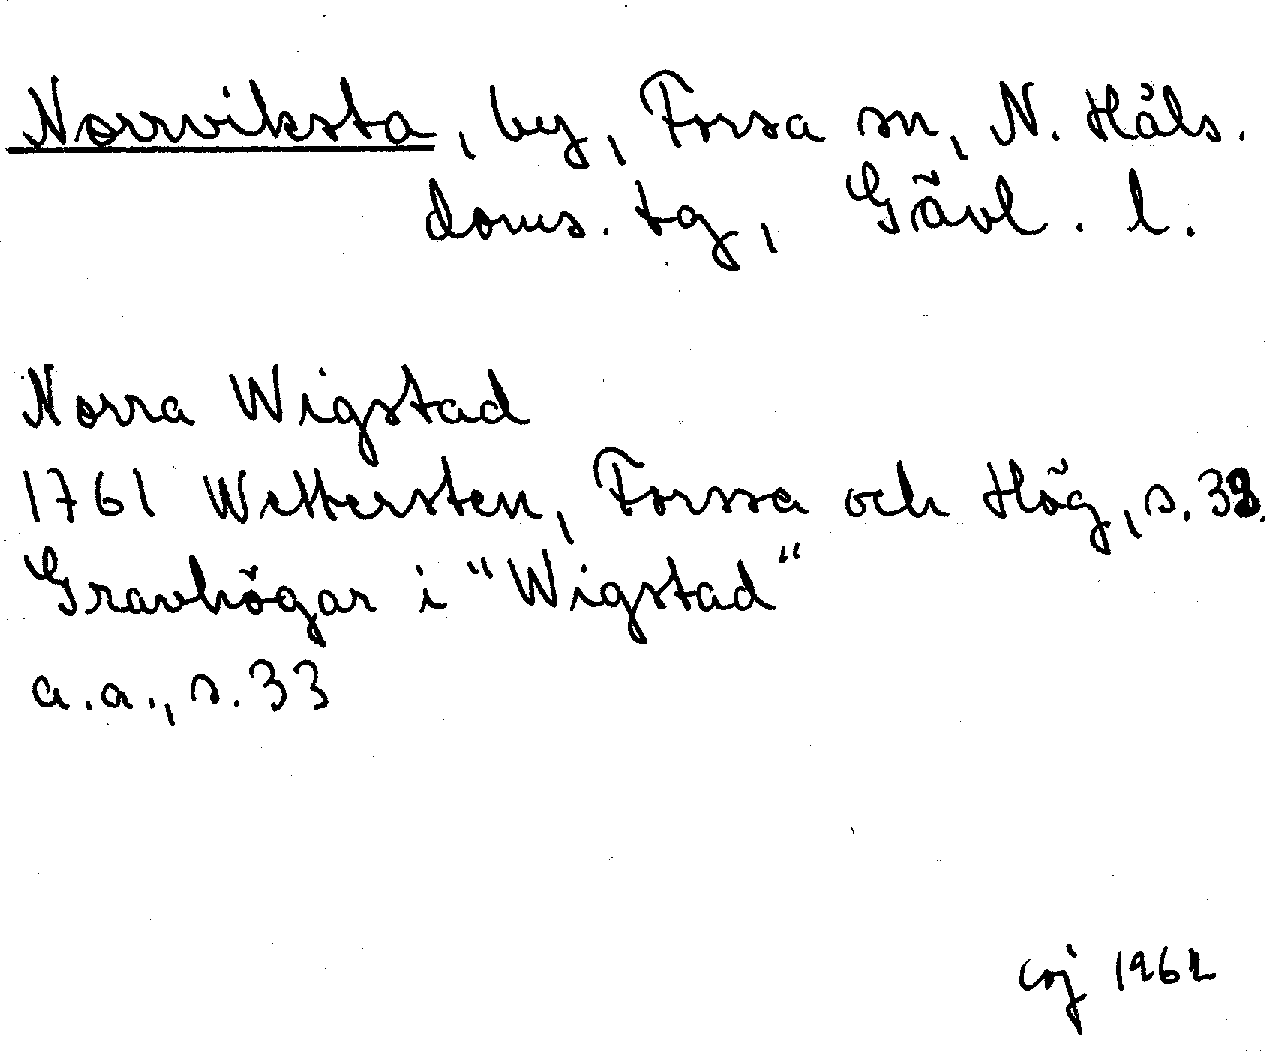 Norrviksta, by, Forsa sn, N. Häls.
doms. tg, Gävl. l.
Norra Wigstad
1761 Wettersten, Forssa och Hög, s. 32.
Gravhögar i "Wigstad"
a.a., s. 33
coj 1962